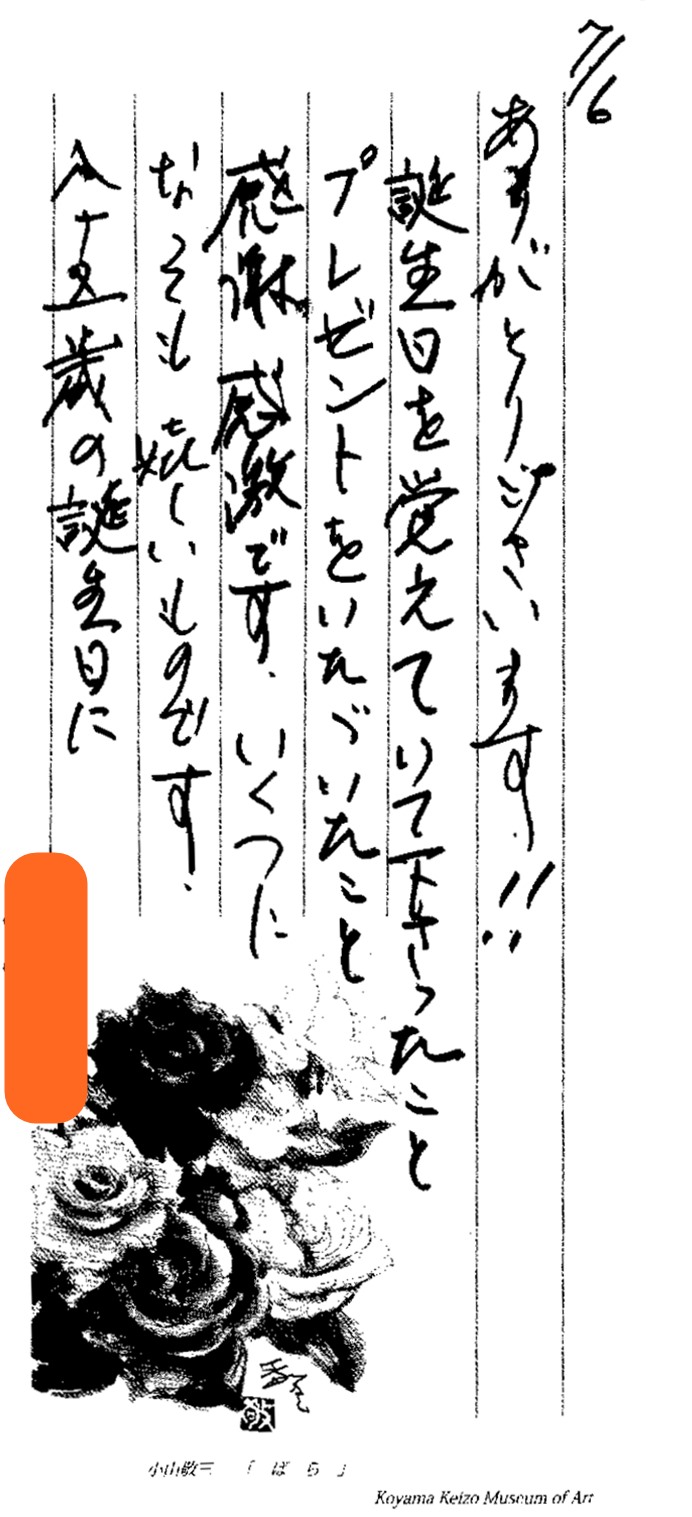 7/6
ありがとうございます!!
誕生日を覚えていて下さったこと
プレゼントをいただいたこと
感謝 感激です. いくつに
なっても 嬉しいものです.
八十五歳の誕生日に
小山敬三 「ばら」
Koyama Keizo Museum of Art